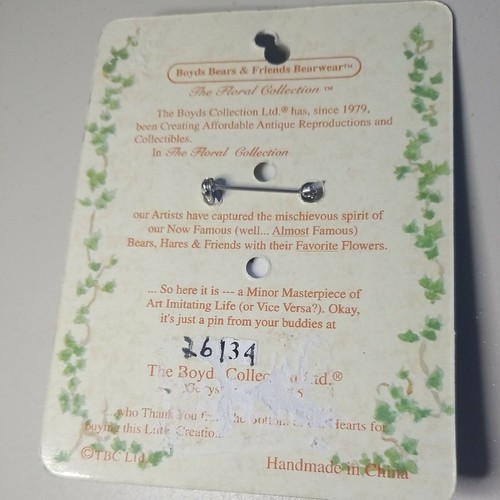 Boyds Bears & Friends Bearwear™
The Floral Collection ™
The Boyds Collection Ltd.® has, since 1979,
been Creating Affordable Antique Reproductions and
Collectibles.
In The Floral Collection
our Artists have captured the mischievous spirit of
our Now Famous (well... Almost Famous)
Bears, Hares & Friends with their Favorite Flowers.
... So here it is --- a Minor Masterpiece of
Art Imitating Life (or Vice Versa?). Okay,
it's just a pin from your buddies at
26134
The Boyds Collection Ltd.®
...who Thank You from the Bottom Hearts for
buying this Little Creation
©TBC Ltd
Handmade in China